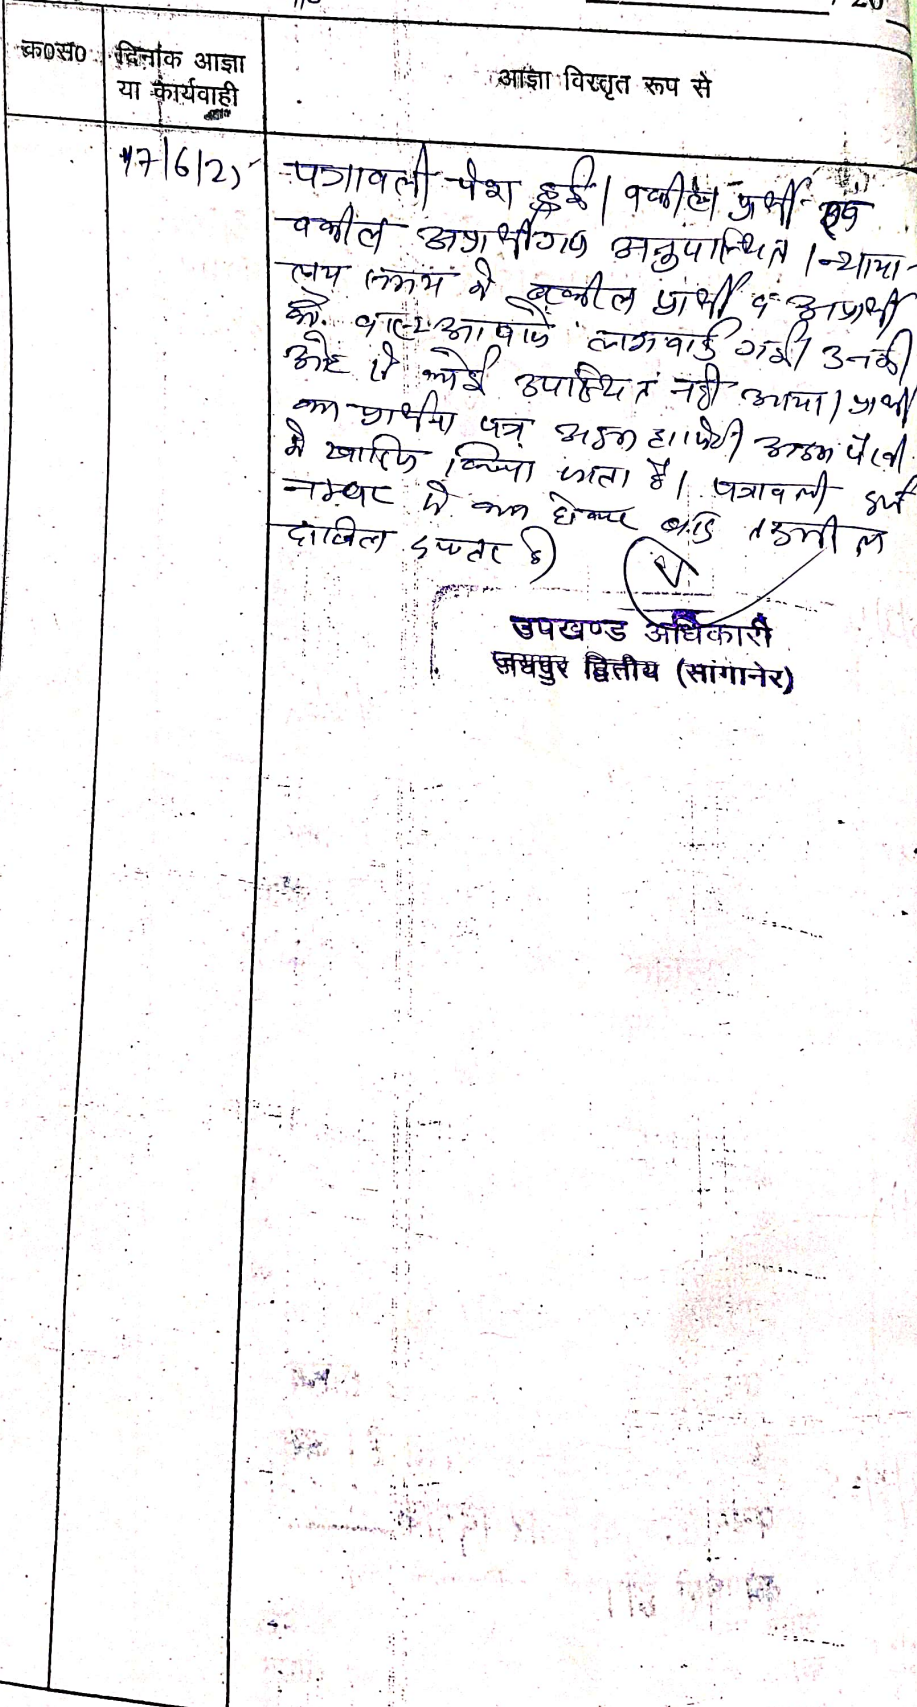 20
क्र०सं० दिनांक आज्ञा या कार्यवाही आज्ञा विस्तृत रूप से
17/6/25 पत्रावली पेश हुई। वकील प्रार्थी एवं
वकील अप्रार्थीगण अनुपस्थित। न्याया-
लय समय में वकील प्रार्थी व अप्रार्थी
को आवाजें लगवाई गई। उनकी
ओर से कोई उपस्थित नहीं आया। प्रार्थी
का प्रार्थना पत्र अदम हाजरी अदम पैरवी
में खारिज किया जाता है। पत्रावली दर्ज
नम्बर से कम होकर बाद तकमील
दाखिल दफ्तर हो
उपखण्ड अधिकारी
जयपुर द्वितीय (सांगानेर)